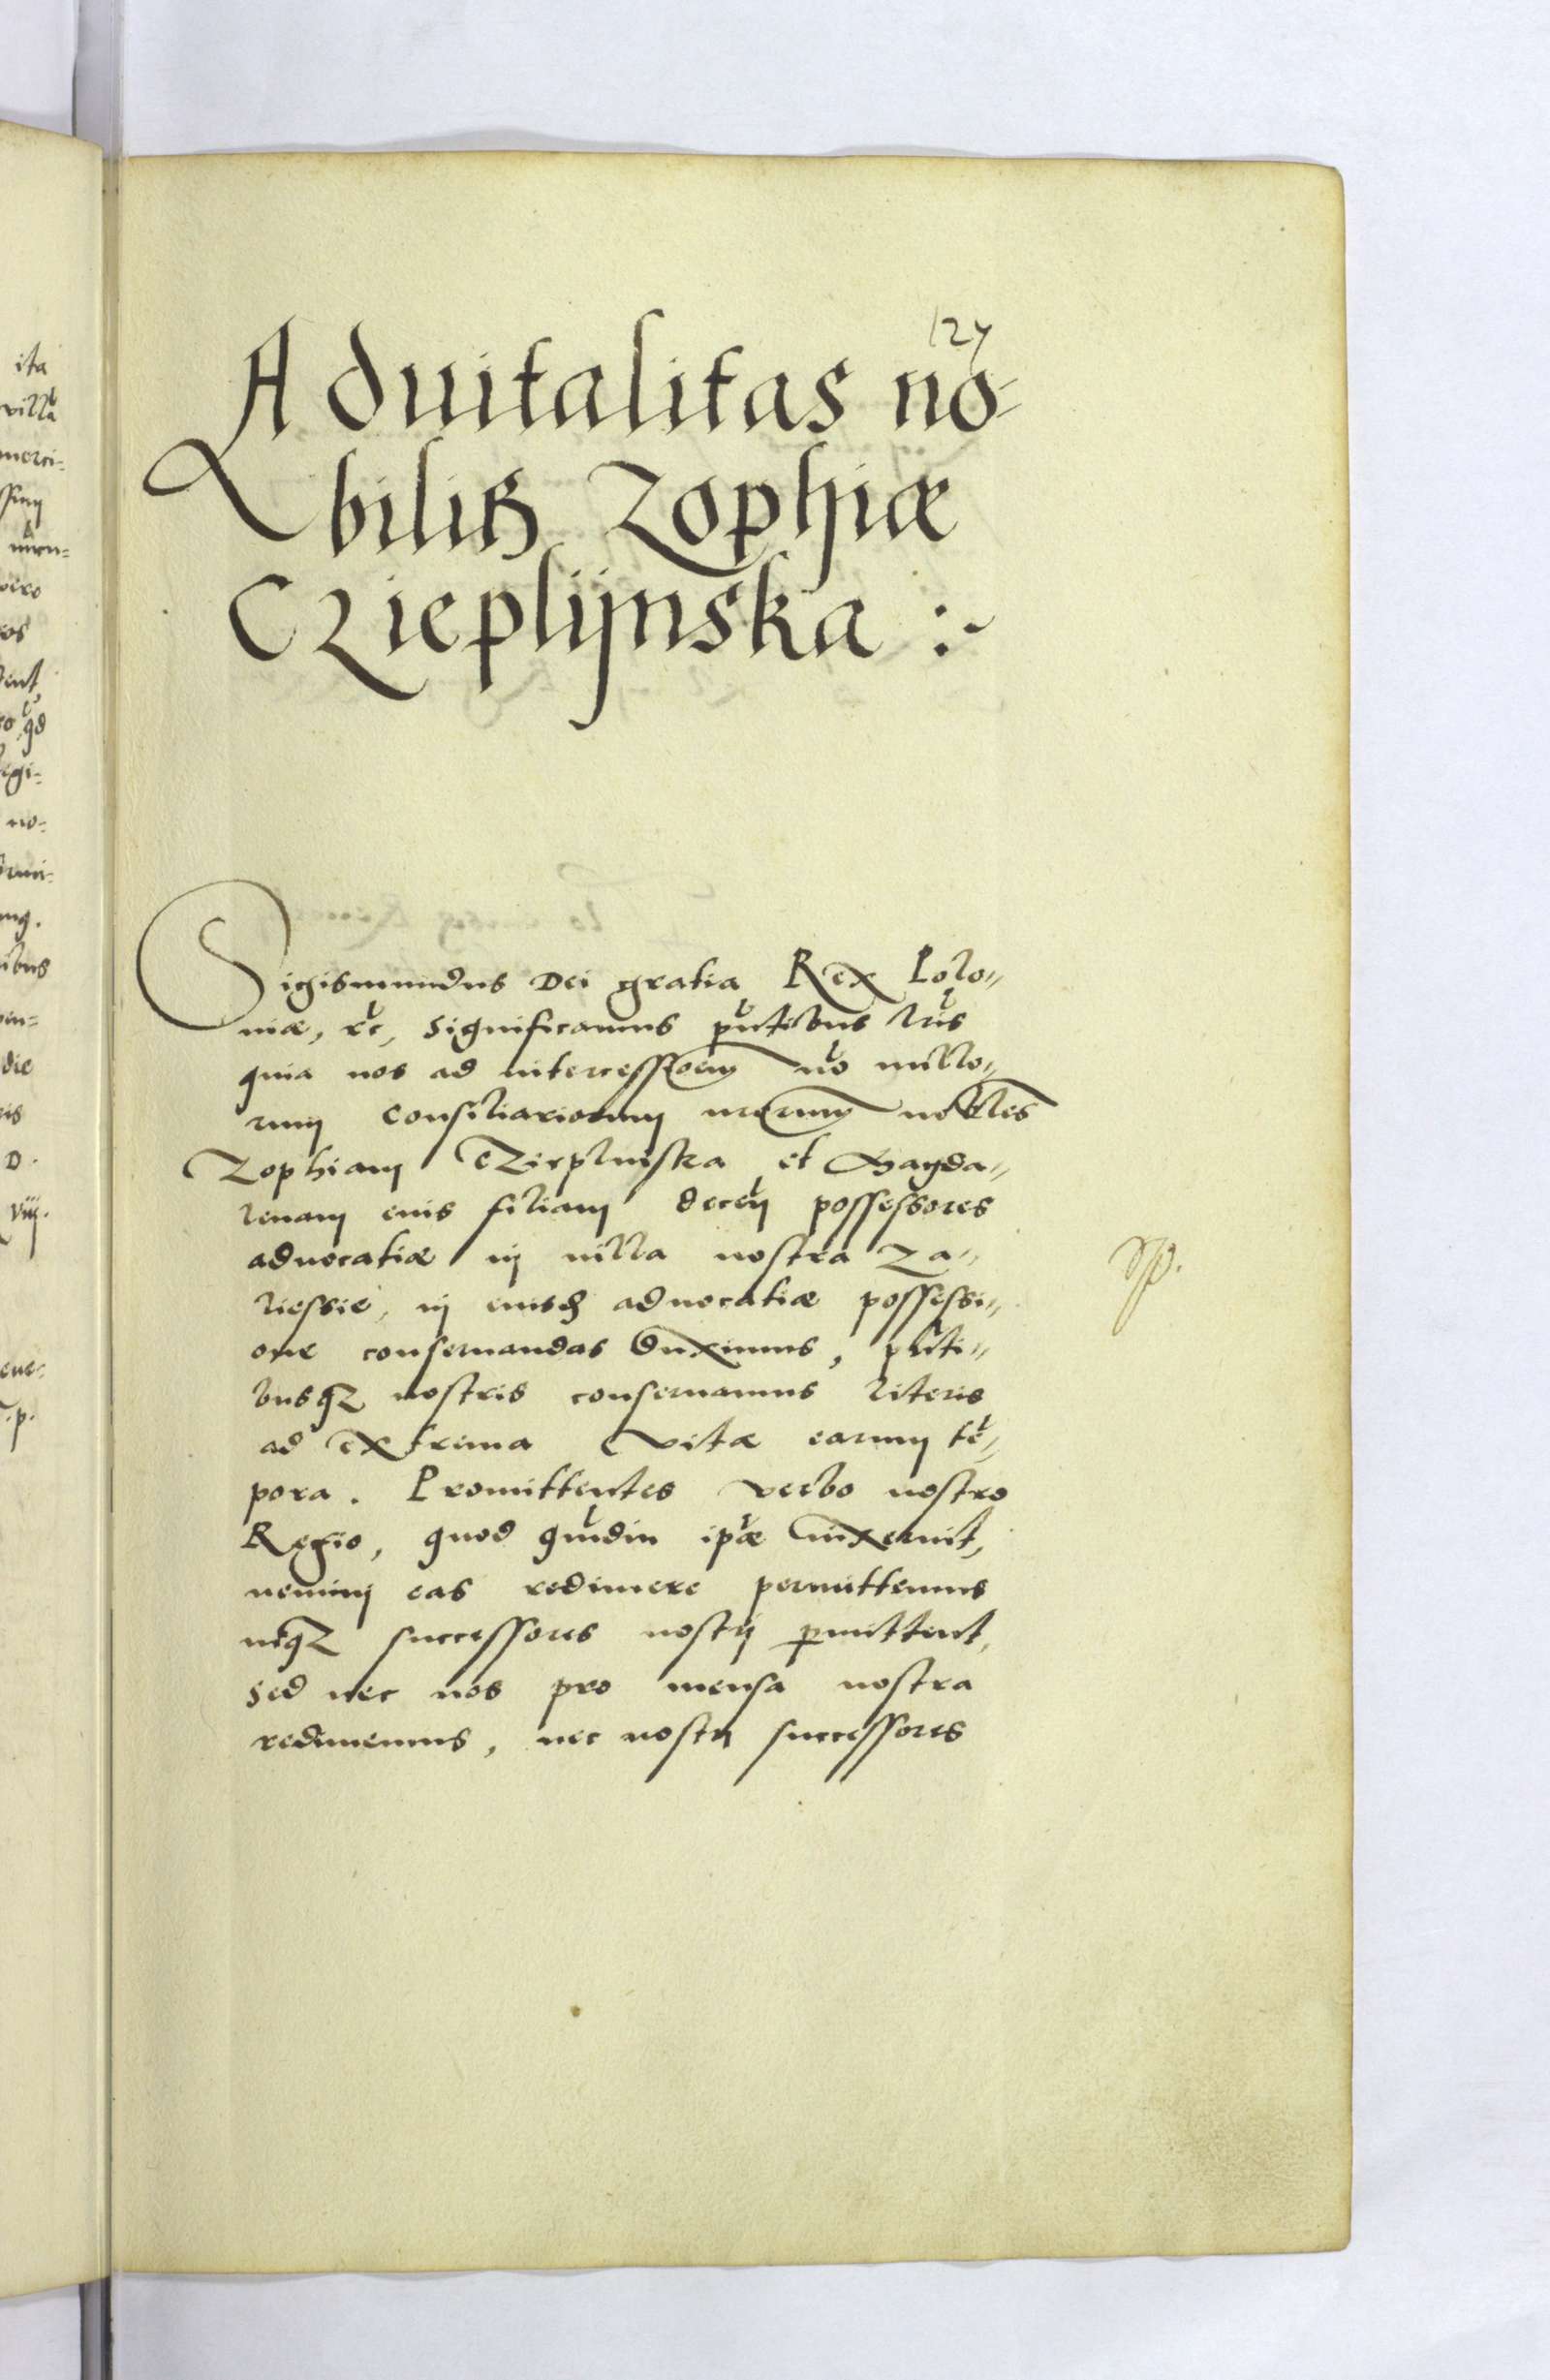 127
Aduitalitas no-
biliß Zophiæ
Czieplijnska :~
Sigismundus Dei gratia Rex Polo„
niæ, ꝛc, significamus pñtibus lr̃is
quia nos ad intercessioem no nullo„
rum consiliariorum nrorum nobiles
Zophiam Czieplinska et Magda„
lenam euis filiam decem possessores
aduocatiæ in uilla nostra Za„
liessie, in euisd aduocatiæ possessi„
one conseruandas duximus, pñti„
busqꝫ nostris conseruamus literis
ad extrema vitæ earum te„
pora. Promittentes verbo nostro
Regio, quod qudiu ipæ uixerint,
nemini eas redimere permittemus
neqꝫ successores nostri pmittent,
sed nec nos pro mensa nostra
redimemus, nec nostri successores
ita
villa
merci-
vero
ros
no-
ibus
die
D.
viij.
.p.